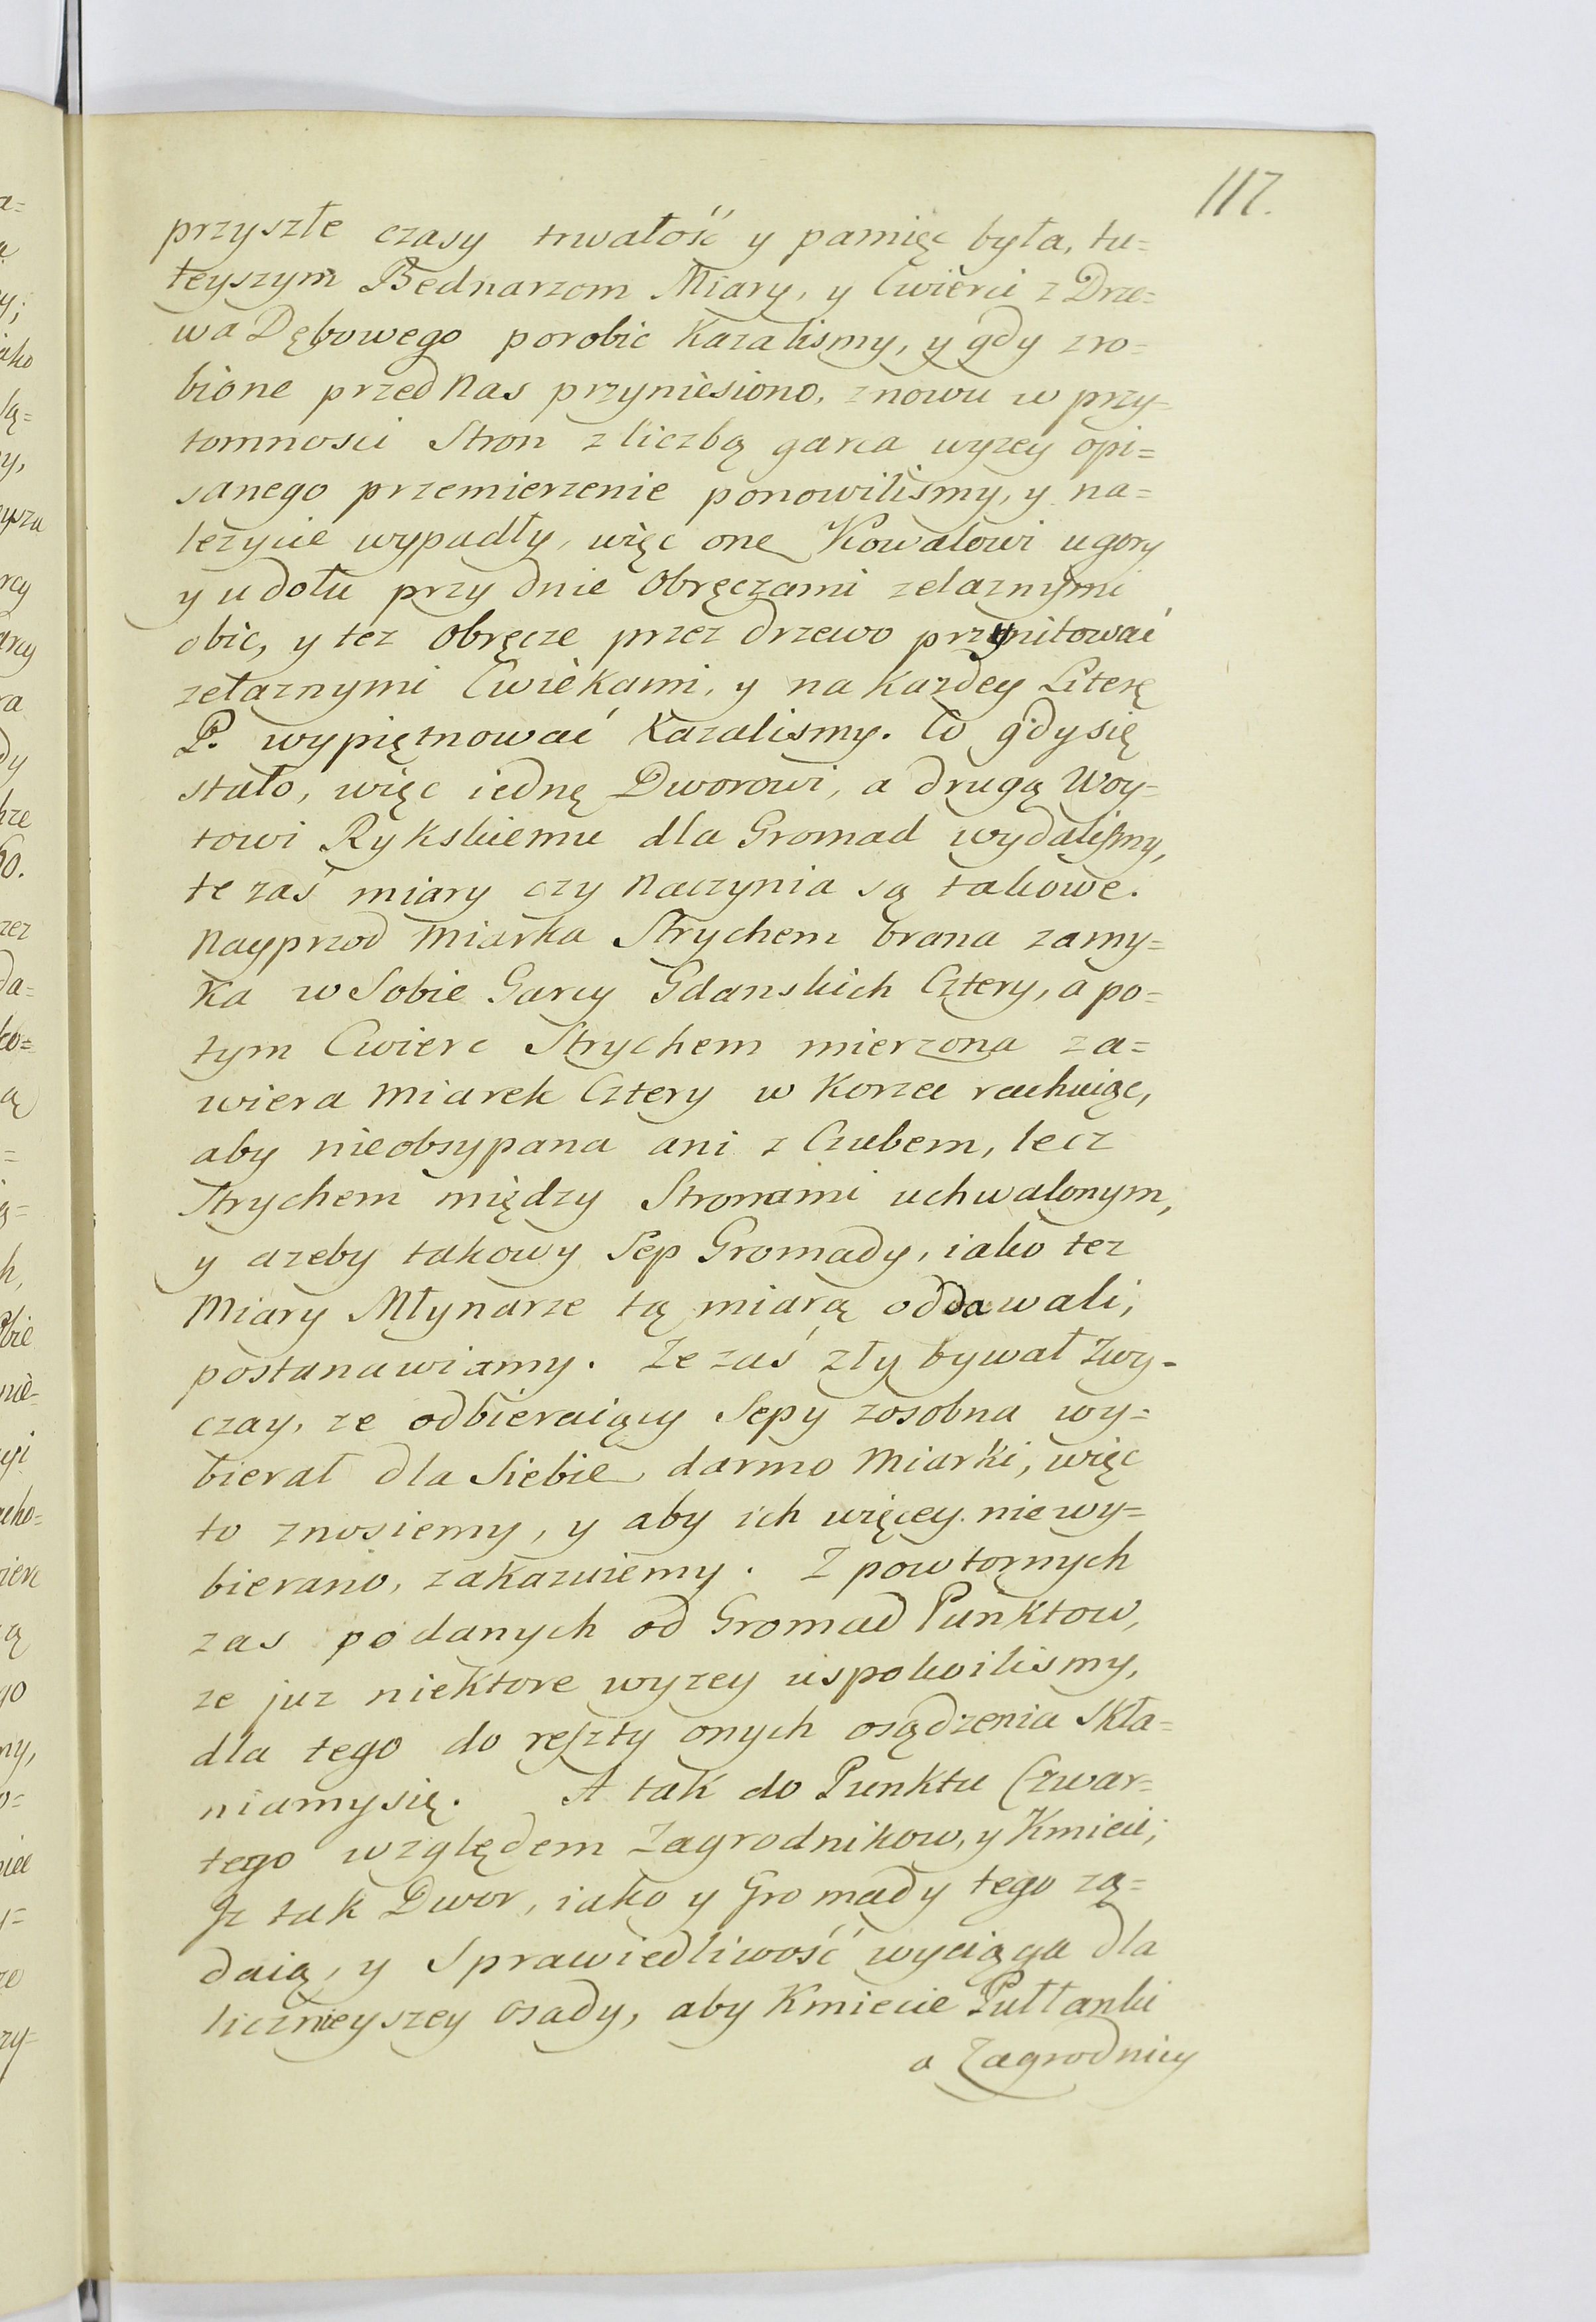 117.
przyszłe czasy trwałość y pamięc była, tu=
teyszym Bednarzom Miary, y Cwierci z Drze=
wa Dębowego porobic kazalismy, y gdy zro=
bione przed Nas przyniesiono, znowu w przy=
tomnosci Stron z liczbą garca wyzey opi=
sanego przemierzenie ponowilismy, y na=
lezycie wypadły, więc one Kowalowi u gory
y u dołu przy dnie Obręczami zelaznymi
obic, y tez Obręcze przez drzewo przynitować
zełaznymi Cwiekami, y na kazdey Literę
P. wypiętnować kazalismy. Co gdy się
stało, więc iednę Dworowi, a drugą Woy=
towi Rykskiemu dla Gromad wydalismy,
te zaś miary czy Naczynia są takowe.
Nayprzod Miarka Strychem brana zamy=
ka w Sobie Garcy Gdanskich Cztery, a po=
tym Cwierc Strychem mierzona za=
wiera Miarek Cztery w Korzec rachuiąc,
aby nieobsypana ani z Czubem, lecz
Strychem między Stronami uchwalonym,
y azeby takowy Sep Gromady, iako tez
Miary Młynarze tą miarą oddawali,
postanawiamy. Ze zaś zły bywał Zwy=
czay, ze odbieraiący Sepy zosobna wy=
bierał dla Siebie darmo Miarki, więc
to znosiemy, y aby ich więcey nie wy=
bierano, zakazuiemy. Z powtornych
zas podanych od Gromad Punktow,
ze juz niektore wyzey uspokoilismy,
dla tego do reszty onych osądzenia Skła=
niamy się. A tak do Punktu Czwar=
tego względem Zagrodnikow, y Kmieci;
Iz tak Dwor, iako y Gromady tego zą=
daią, y Sprawiedliwość wyciąga dla
licznieyszey Osady, aby Kmiecie Pułłanki
a Zagrodnicy